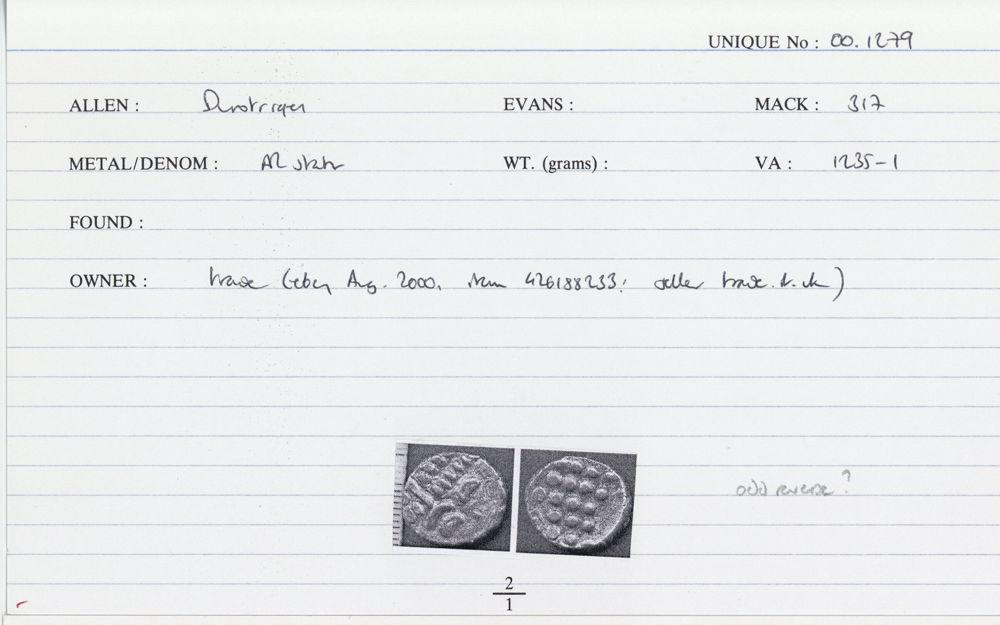 UNIQUE No : 00.1279
ALLEN : Durotriges EVANS : MACK : 317
METAL/DENOM : AR stater WT. (grams) : VA : 1235-1
FOUND :
OWNER : trade (ebay Aug. 2000, item 426188233: seller
odd reverse?
2
1